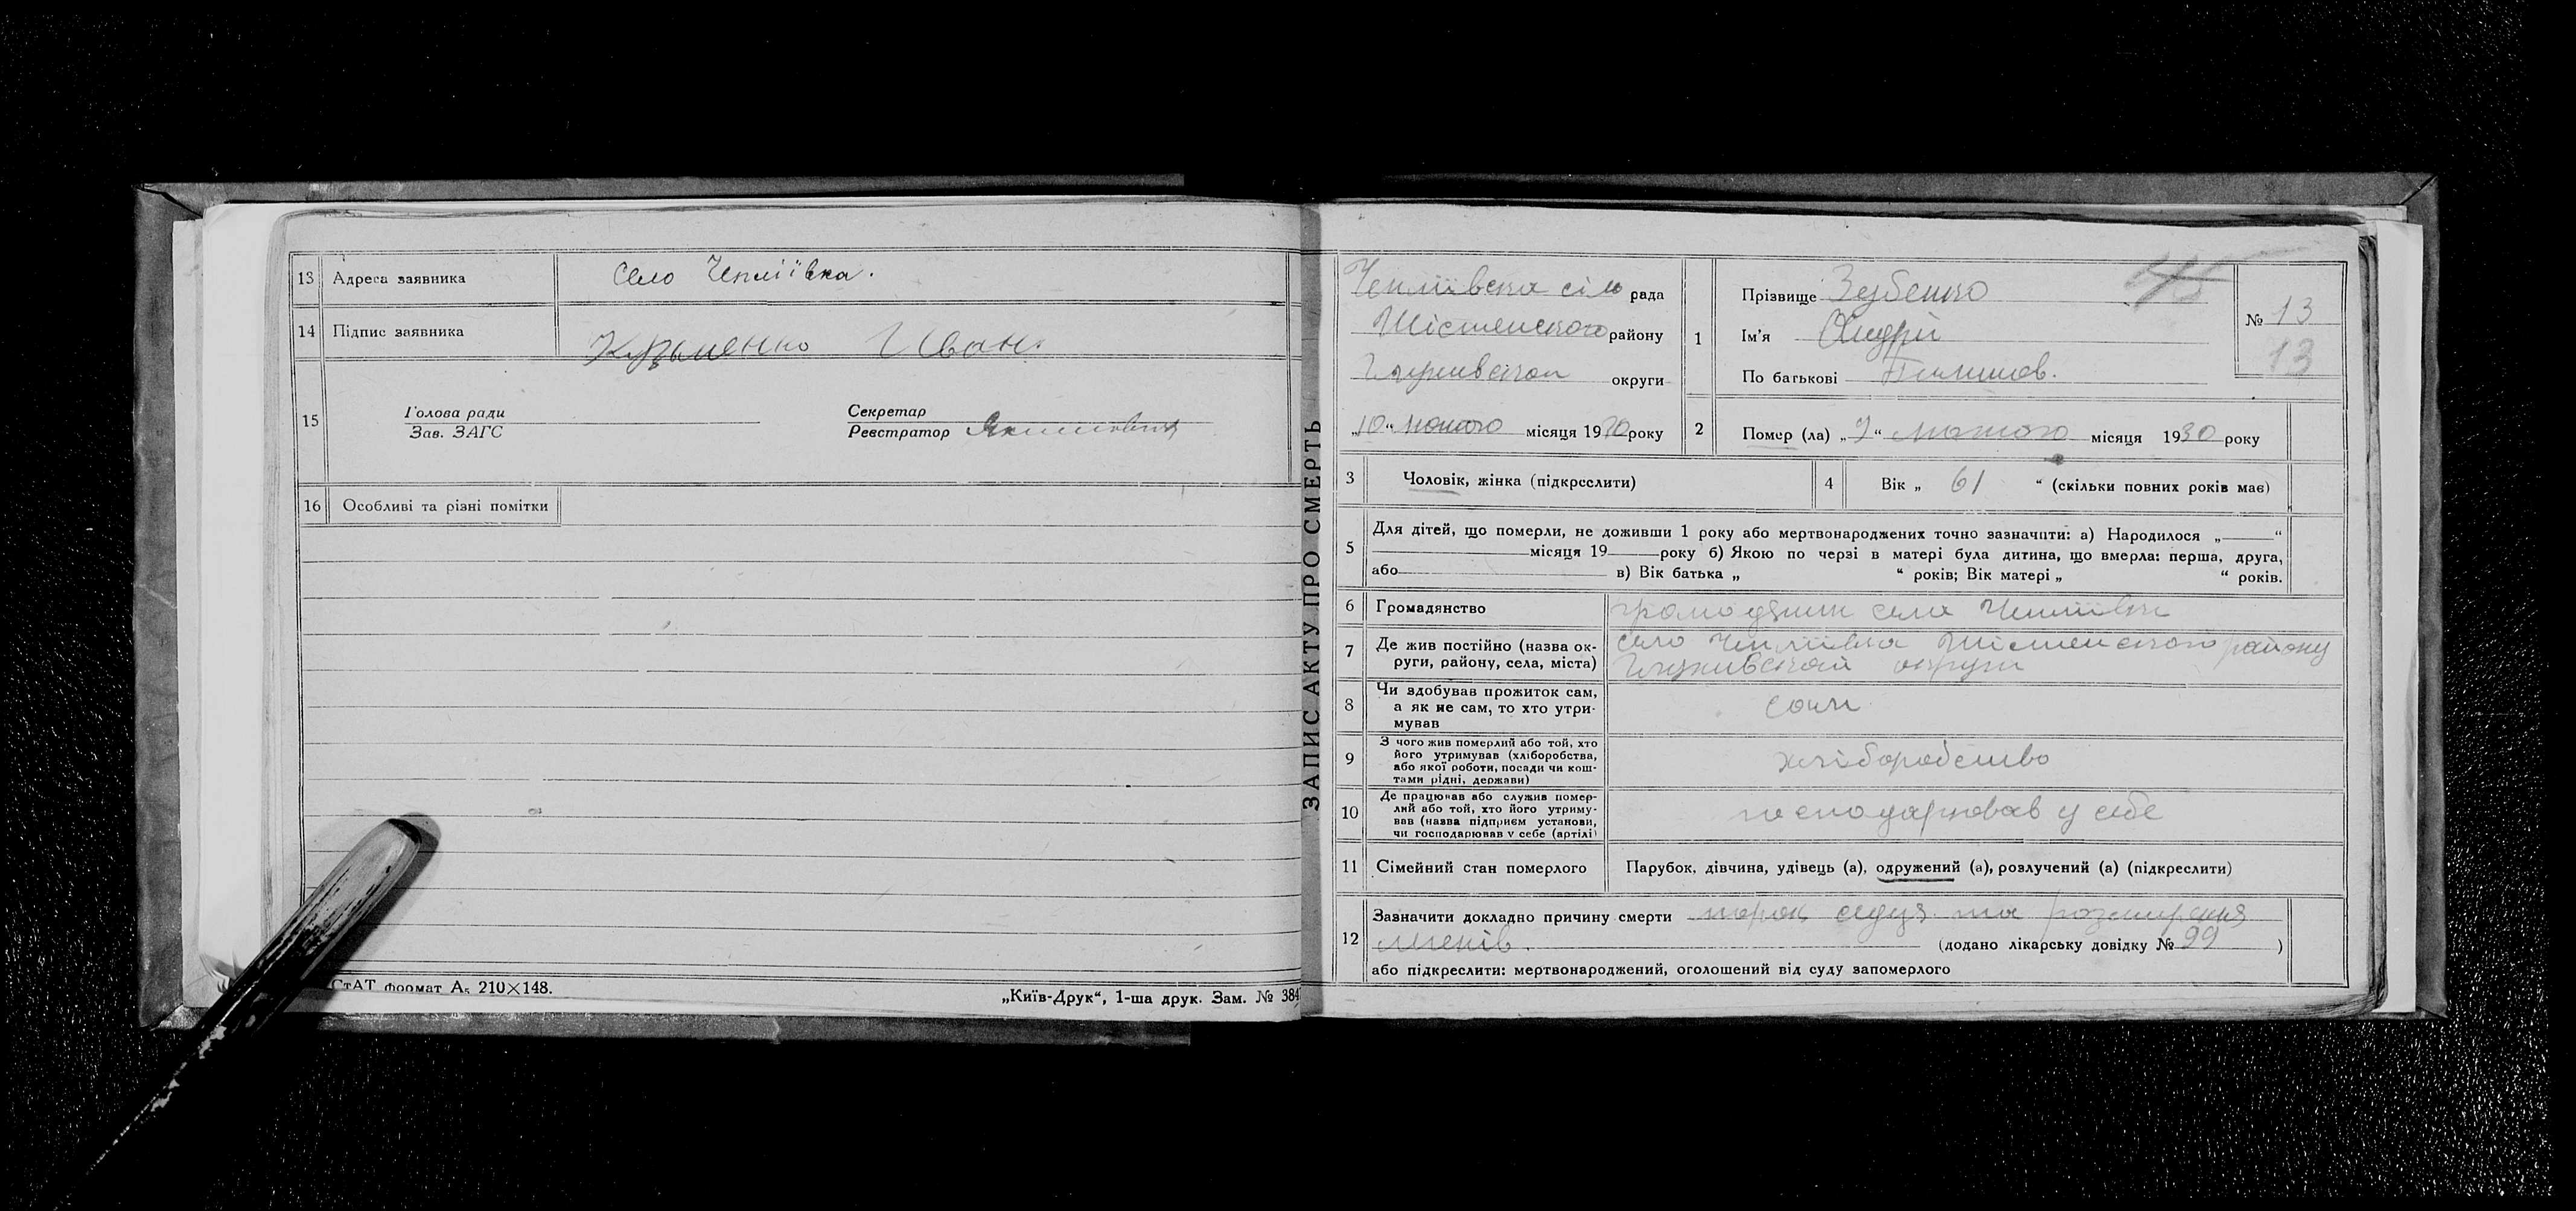 13 Адреса заявника Село Чепліївка.
14 Підпис заявника Кузьменко Иван.
15 Голова ради
Зав. ЗАГС
Секретар
Реєстратор
16 Особливі та різні помітки
СтАТ формат А₅ 210×148.
„Київ-Друк“, 1-ша друк. Зам. № 384
ЗАПИС АКТУ ПРО СМЕРТЬ
Чепліївска сіль рада
району
округи
„10“ лютого місяця 1930 року
№ 13
13
1 Прізвище Зубенко
Ім'я Андрій
По батькові
2 Помер (ла) „9“ лютого місяця 1930 року
3 Чоловік, жінка (підкреслити)
4 Вік „ 61 “ (скільки повних років має)
5 Для дітей, що померли, не доживши 1 року або мертвонароджених точно зазначити: а) Народилося „ “
місяця 19 року б) Якою по черзі в матері була дитина, що вмерла: перша, друга,
або в) Вік батька „ “ років; Вік матері „ “ років.
6 Громадянство громадянин села Чепліївки
7 Де жив постійно (назва ок-
руги, району, села, міста)
село Чепліївка району
округи
8 Чи здобував прожиток сам,
а як не сам, то хто утри-
мував
сам
9 З чого жив померлий або той, хто
його утримував (хліборобства,
або якої роботи, посади чи кош-
тами рідні, держави)
хліборобство
10 Де працював або служив помер-
лий або той, хто його утриму-
вав (назва підприєм установи,
чи господарював у себе (артілі)
господарював у себе
11 Сімейний стан померлого Парубок, дівчина, удівець (а), одружений (а), розлучений (а) (підкреслити)
12 Зазначити докладно причину смерти порок серця та розширення
легенів. (додано лікарську довідку № 99 )
або підкреслити: мертвонароджений, оголошений від суду запомерлого